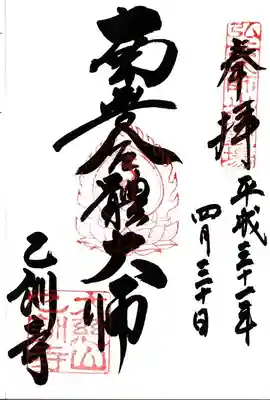 奉拝
平成三十一年
四月三十日
南無合體大師
乙訓寺
大慈山
乙訓寺